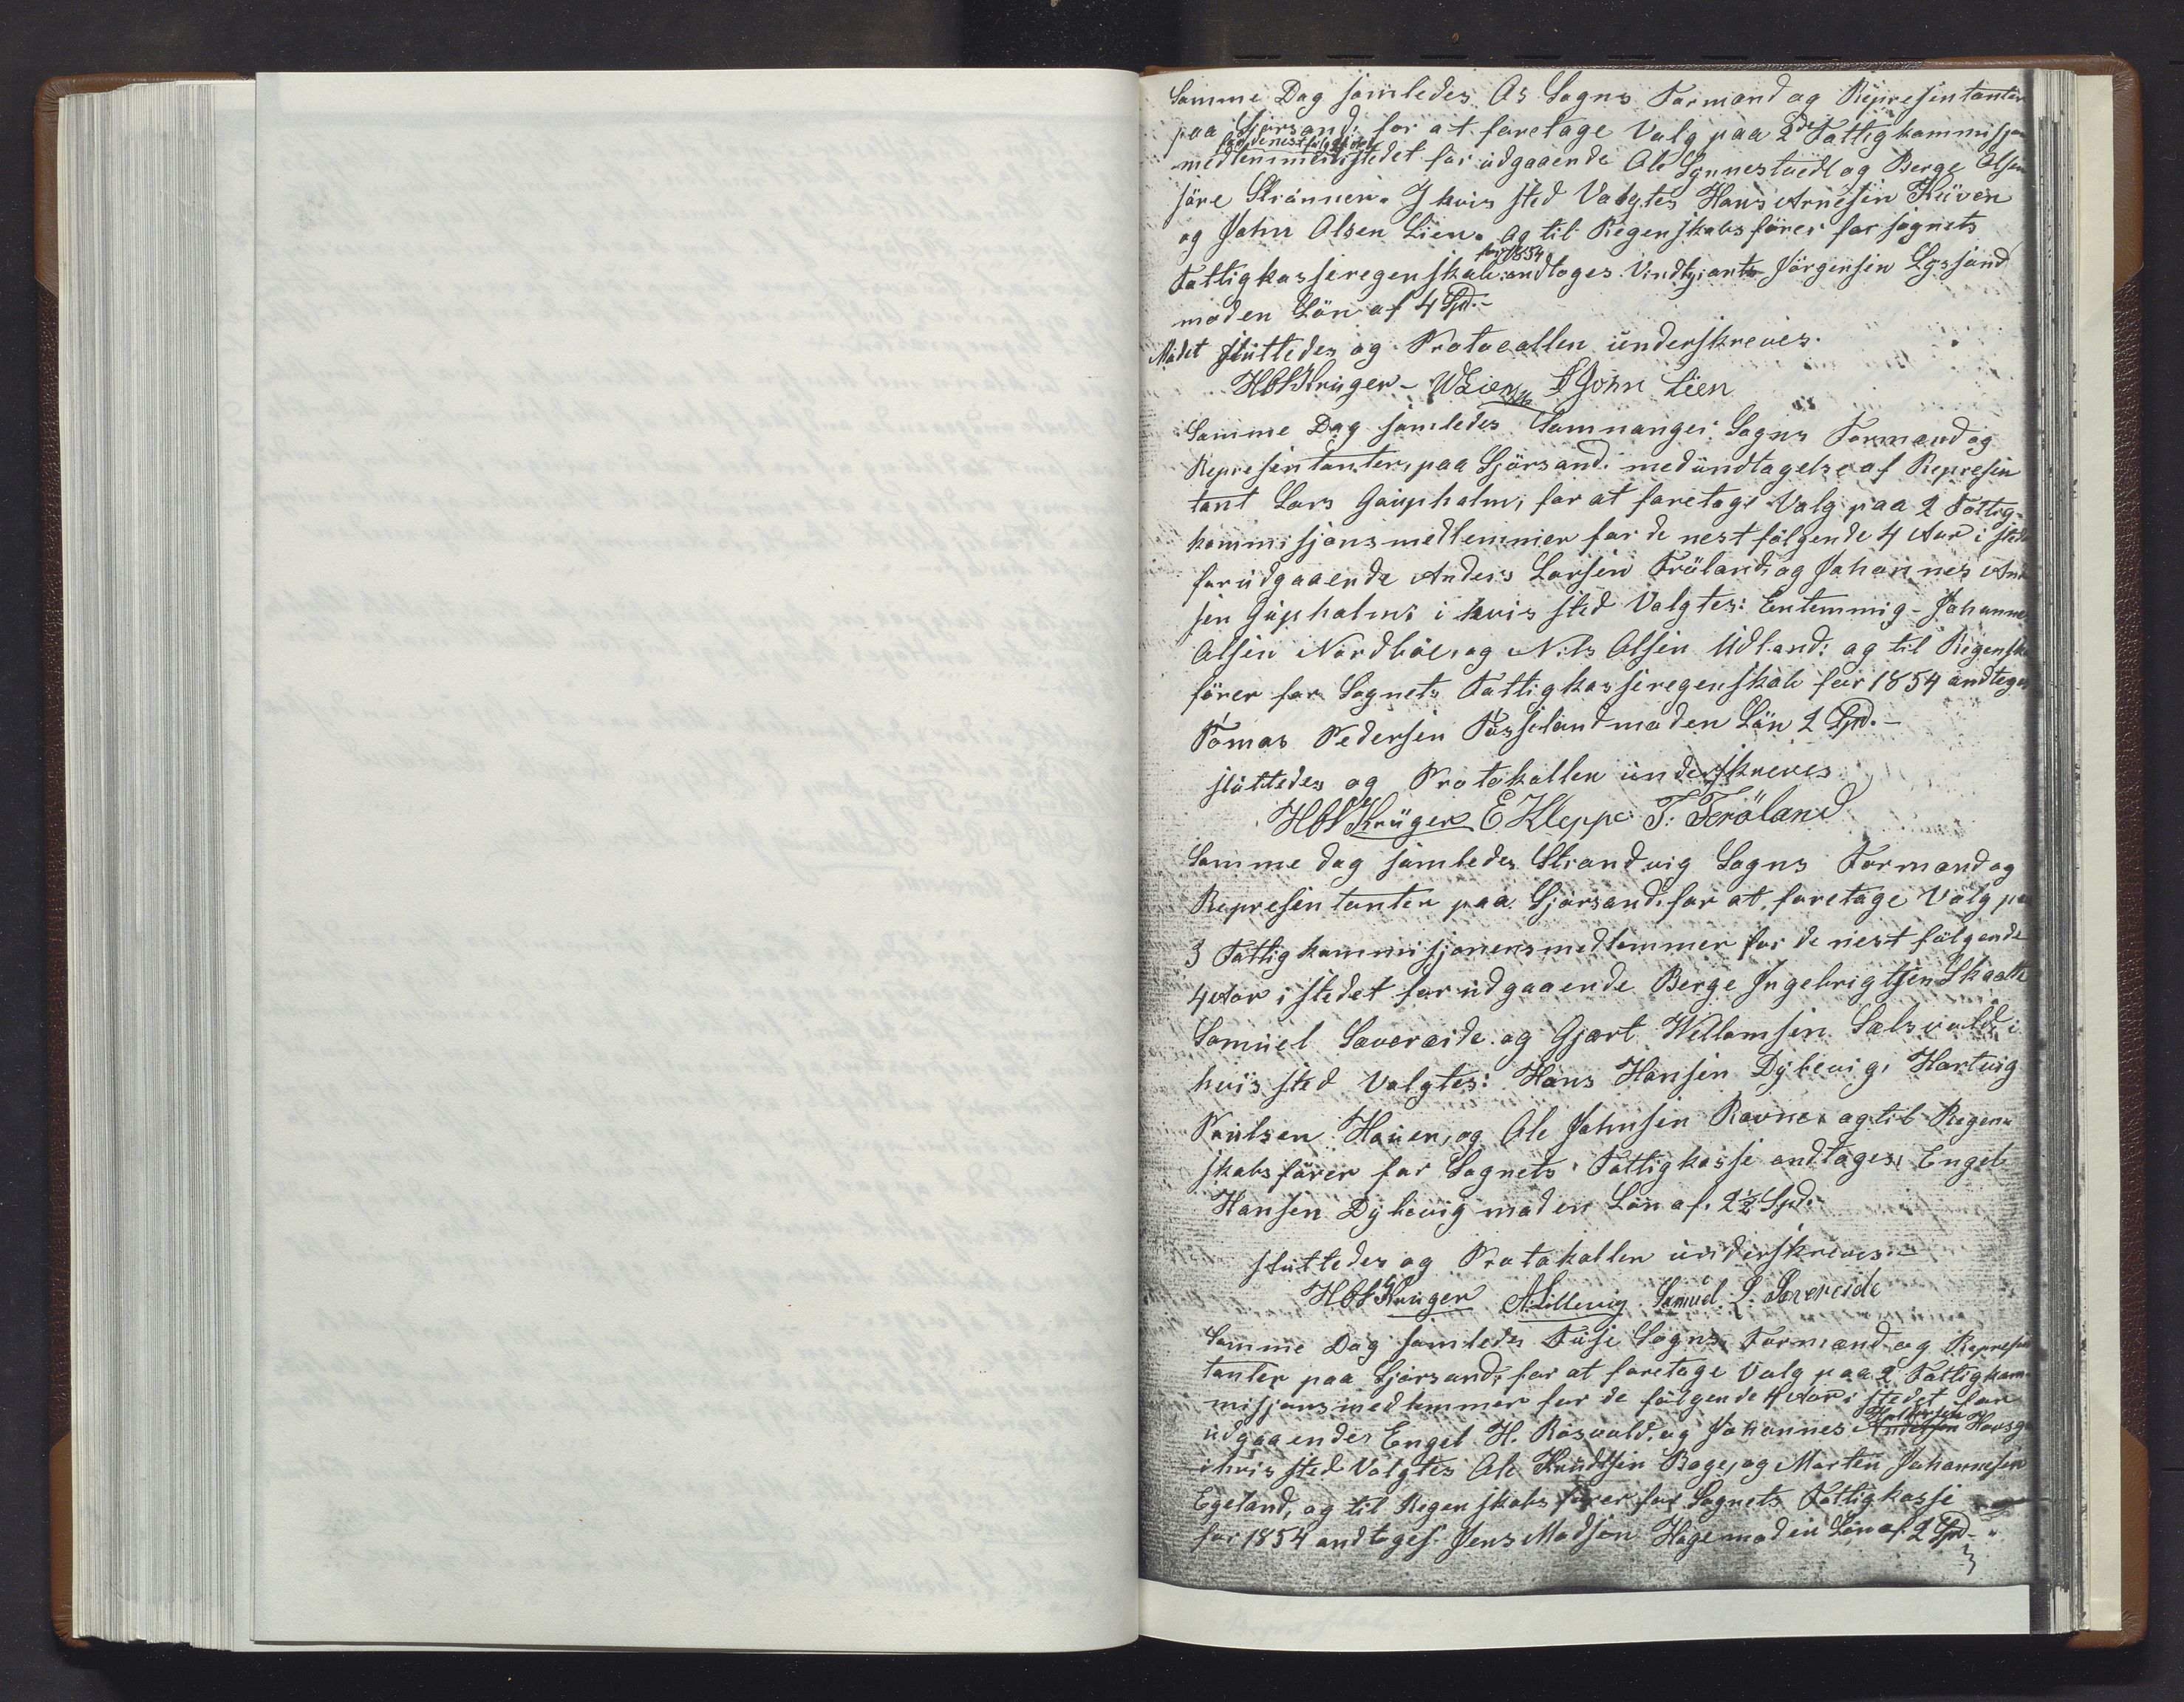 Samme Dag samledes Os Sogns Formænd og Repræsentanter
paa Sjørsand, for at foretage Valg paa 2de Fattigkommisjons
for de nest følgende 4 Aar
medlemmer istedet for udgaaende Ole Synnestvedt og Berge Olsen
søre Strønnen. I hvis sted Valgtes Hans Arnesen Kuven
og John Olsen Lien. Og til Regenskabsfører for sognets
for 1854
Fattigkasseregenskab andtoges Vindtziants Jørgensen Lyssand
mod en Løn af 4 Spd. -
Mødet sluttedes og Protocollen underskreves.
HCS Krüger - WLien John Lien
Samme Dag samledes Samnanger Sogns Formænd og
Repræsentanter, paa Sjørsand. med undtagelse af Represen
tant Lars Gaupholm, for at foretage Valg paa 2 Fattig-
kommisjonsmedlemmer for de nest følgende 4 Aar i sted
for udgaaende Anders Larsen Frøland, og Johannes
sen Gupholm; i hvis sted Valgtes: Entemmig - Johannes
Olsen Nordbøe, og Nils Olsen Udland: og til Regenska
fører for Sognets Fattigkasseregenskab for 1854 andtoges
Tomas Pedersen Tøsseland mod en Løn 2 Spd. -
sluttedes og Protokollen underskreves
HCS Krüger E Kleppe T. Frøland
Samme dag samledes Strandvig Sogns Formænd og
Representanter paa Sjørsand, for at foretage Valg paa
3 Fattigkommisjonensmedlemmer for de nest følgende
4 Aar istedet for udgaaende Berge Ingebrigtsen Skaate
Samuel Sævareide og Gjært Willomsen Sælsvold, i
hvis sted Valgtes: Hans Hansen Dybevig, Hartvig
Poulsen Hauen, og Ole Johnsen Ravne, og til Regen-
skabsfører for Sognets Fattigkasse andtoges, Engel
Hansen Dybevig mod en Løn af. 2½ Spd.
sluttedes og Protokollen underskreves. -
HCS Krüger A. Lillevig Samuel L. Sævereide
Samme Dag samledes Fuse Sogns, Formænd og Represen
tanter paa Sjørsand, for at foretage Valg paa 2 Fattigkom
misjonsmedlemmer for de følgende 4 Aar i stedet for
udgaaendes Engel H. Røsvald, og Johannes Andersen
i hvis sted Valgtes Ole Knudtsen Bage, og Marten Johannesen
Egeland, og til Regenskabsfører for Sognets Fattigkasse
for 1854 andtoges. Jens Madsen Hage mod en Løn af 2 Spd -